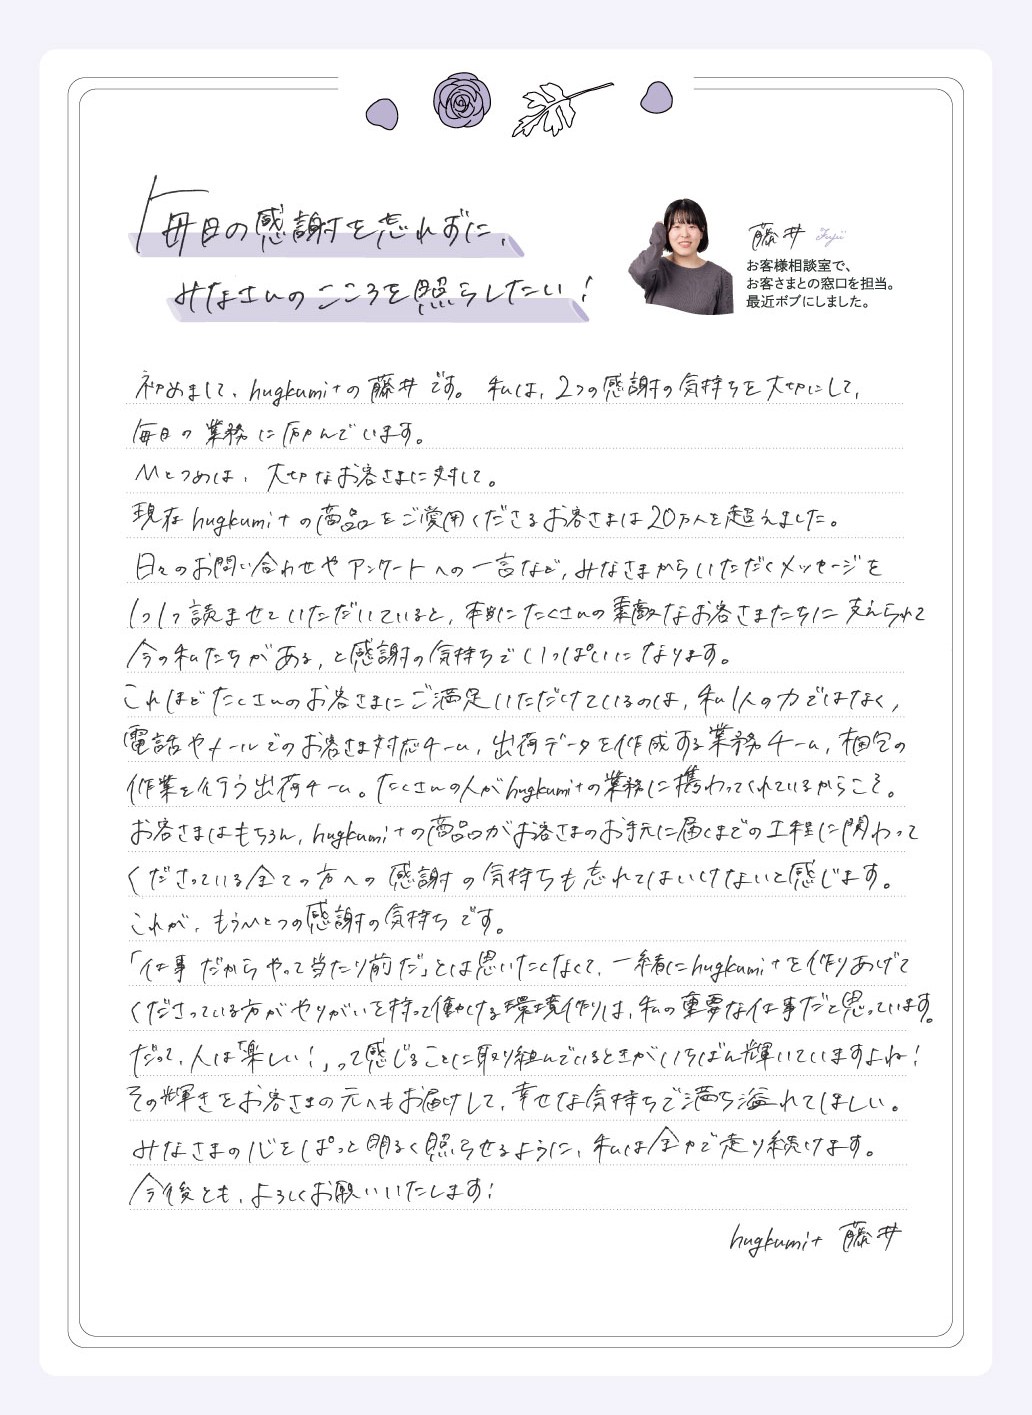 「毎日の感謝を忘れずに、
みなさんのこころを照らしたい!
藤井 Fujii
お客様相談室で、
お客さまとの窓口を担当。
最近ボブにしました。
初めまして、hugkumi+の藤井です。私は、2つの感謝の気持ちを大切にして、
毎日の業務に励んでいます。
ひとつめは、大切なお客さまに対して。
現在hugkumi+の商品をご愛用くださるお客さまは20万人を超えました。
日々のお問い合わせやアンケートへの一言など、みなさまからいただくメッセージを
1つ1つ読ませていただいていると、本当にたくさんの素敵なお客さまたちに支えられて
今の私たちがある、と感謝の気持ちでいっぱいになります。
これほどたくさんのお客さまにご満足いただけているのは、私1人の力ではなく、
電話やメールでのお客さま対応チーム、出荷データを作成する業務チーム、梱包の
作業を行う出荷チーム。たくさんの人がhugkumi+の業務に携わってくれているからこそ。
お客さまはもちろん、hugkumi+の商品がお客さまのお手元に届くまでの工程に関わって
くださっている全ての方への感謝の気持ちも忘れてはいけないと感じます。
これが、もうひとつの感謝の気持ちです。
「仕事だからやって当たり前だ」とは思いたくなくて、一緒にhugkumi+を作りあげて
くださっている方がやりがいを持って働ける環境作りは、私の重要な仕事だと思っています。
だって、人は「楽しい!」って感じることに取り組んでいるときがいちばん輝いていますよね!
その輝きをお客さまの元へもお届けして、幸せな気持ちで満ち溢れてほしい。
みなさまの心をぱっと明るく照らせるように、私は全力で走り続けます。
今後とも、よろしくお願いいたします!
hugkumi+ 藤井